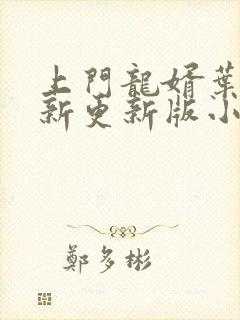 上門龍婿葉
新更新版小
鄭多彬